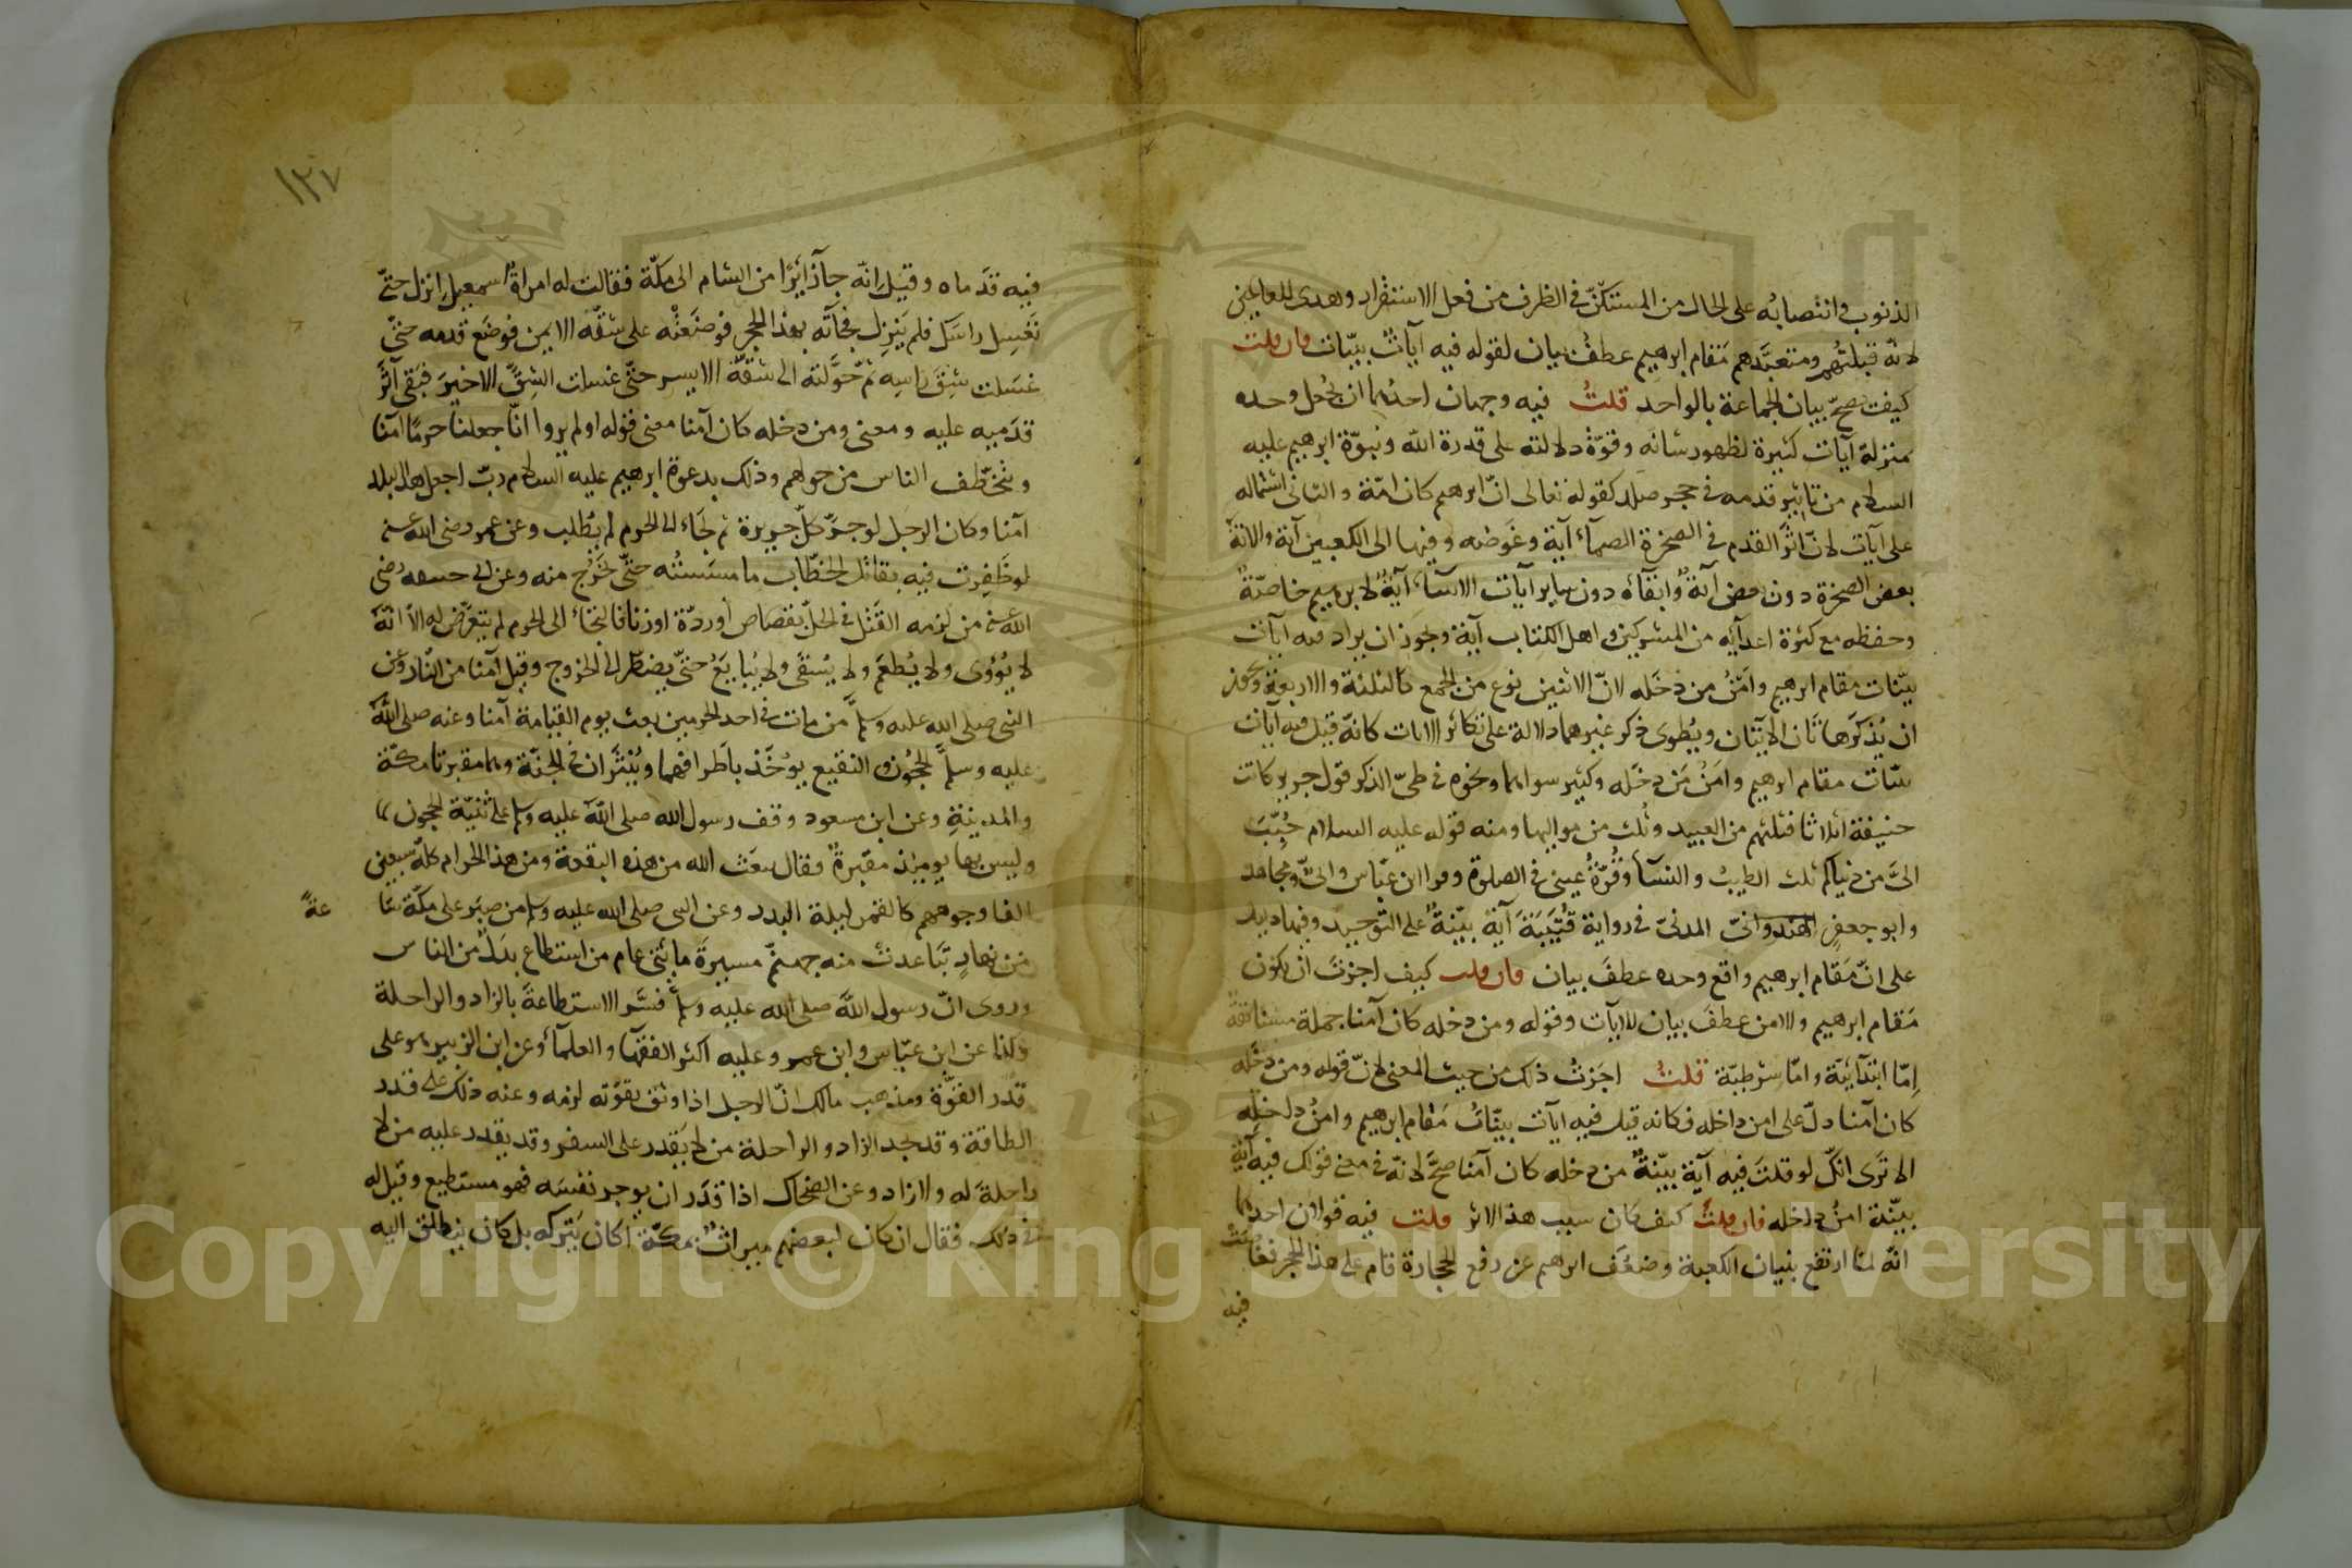 الذنوب وانتصابُه على الحال من المستكنّ في الظرف من فعل الاستقرار وهدى للعالمين
لانّه قبلتُهم ومتعبَّدهم مَقام ابرهيم عطفُ بيان لقوله فيه آياتٌ بيّنات فان قلت
كيف صحّ بيان الجماعة بالواحد قلتُ فيه وجهان احدُهما ان يُجعل وحده
بمنزلة آيات كثيرة لظهور شانه وقوّة دلالته على قدرة الله ونبوّة ابرهيم عليه
السلام من تاثير قدمه في حجر صلد كقوله تعالى انّ ابرهيم كان امّة والثاني اشتماله
على آيات لانّ اثَر القدم في الصخرة الصمآء آية وغَوصَه فيها الى الكعبين آية والانة
بعض الصخرة دون بعض آيةٌ وابقآءه دون ساير آيات الانبيآء آيةٌ لابرهيم خاصّةً
وحفظه مع كثرة اعدآيه من المشركين واهل الكتاب آية ويجوز ان يراد فيه آيات
بيّنات مقام ابرهيم وامْنُ من دَخَله لانّ الاثنين نوع من الجمع كالثلثة والاربعة ويجوز
ان يُذكَر هاتان الآيتان ويُطوى ذكر غيرهما دلالة على تكاثر الايات كانّه قيل فيه آيات
بيّنات مقام ابرهيم وامْنُ مَن دخَله وكثير سواهما ونحوه في طيّ الذكر قول جرير كانت
حنيفة اثلاثا فثلثهم من العبيد وثُلث من مواليها ومنه قوله عليه السلام حُبّبَ
اليَّ من دنياكم ثلث الطيبُ والنسآء وقُرّةُ عيني في الصلوة وقرا ابن عبّاس وابيّ ومجاهد
وابو جعفر الهندوانيّ المدنيّ في رواية قُتَيْبَةَ آية بيّنةٌ على التوحيد وفيها دليل
على انّ مَقام ابرهيم واقع وحده عطفَ بيان فان قلت كيف اجزتَ ان يكون
مَقام ابرهيم والامن عطفَ بيان للآيات وقوله ومن دخله كان آمنا جملة مستانفة
اِمّا ابتدآئيّة وامّا شرطيّة قلتُ اجَزتُ ذلك من حيث المعنى لانّ قوله ومن دخَله
كان آمنا دلّ على امن داخله فكانه قيل فيه آيات بيّناتٌ مَقام ابرهيم وامنُ داخلِه
الا ترَى انكّ لو قلتَ فيه آية بيّنةٌ من دخله كان آمنا صحَّ لانّه في معنى قولك فيه آية
بيّنة امنُ داخله فان قلتَ كيف كان سبب هذا الاثر قلت فيه قولان احدهما
انّه لمّا ارتفع بنيان الكعبة وضعُف ابرهيم عن رفع الحجارة قام على هذا الحجر فغاصت
فيه
١٢٧
فيه قدَماه وقيل انّه جآء زائرًا من الشام الى مكّة فقالت له امراةُ اسمعيل انزل حتّى
نَغسِل راسَك فلم يَنزِل فجآءته بهذا الحجر فوضَعَتْه على شقّه الايمن فوضَع قدمه حتّى
غسَلت شِقَّ راسِه ثمّ حوَّلته الى شقّه الايسر حتّى غسلت الشِقَّ الاخيرَ فبَقي آثَرُ
قدَميه عليه ومعنى ومن دخله كان آمنا معنى قوله اولم يروا انّا جعلنا حرمًا آمنا
ويُتخطّف الناس من حولهم وذلك بدعوة ابرهيم عليه السلام ربّ اجعل هذا البلد
آمنا وكان الرجل لو جرّ كلّ جريرة ثم لجَاء الى الحرم لم يُطلب وعن عمر رضي الله عنه
لو ظَفِرت فيه بقاتل الخطّاب ما مسَسْتُه حتّى يخرُج منه وعن ابي حنيفه رضي
الله عنه من لزمه القَتْل في الحلّ بقصاص أو ردّة او زنا فالتجَاء الى الحرم لم يتعرّض له الّا انّه
لا يُؤْوى ولا يُطعَم ولا يُسقَى ولا يُبايَعُ حتّى يضطرّ الى الخروج وقيل آمنا من النّار وعن
النبي صلى الله عليه وسلم من مات في احد الحرمين بعث يوم القيامة آمنا وعنه صلى الله
عليه وسلم الحَجُون والبقيع يؤخَذ باَطرافهما ويُنثَران في الجنّة وهما مقبرتا مكّة
والمدينةِ وعن ابن مسعود وقف رسول الله صلى الله عليه وسلم على ثنيّة الحجون
وليس بها يوميذ مقبرةٌ فقال يبعَث الله من هذه البقعة ومن هذا الحرام كلّه سبعين
الفا وجوههم كالقمر ليلة البدر وعن النبي صلى الله عليه وسلم من صبَر على حرّ مكّة
عةً
من نهارٍ تبَاعدتْ منه جهنمّ مسيرةَ مائتي عام من استطاع بدَلٌ من الناس
وروى انّ رسول اللَّه صلى الله عليه وسلم فسَّر الاستطاعةَ بالزاد والراحلة
وكذا عن ابن عبّاس وابن عمر وعليه اكثر الفقهآء والعلمآء وعن ابن الزبير هو على
قدر القوّة ومذهب مالك انّ الرجل اذا وثق بقوّته لزمه وعنه ذلك على قدر
الطاقة وقد يجد الزاد والراحلة من لا يَقدر على السفر وقد يقدر عليه من لا
راحلةَ له ولا زاد وعن الضحاك اذا قدَر ان يوجر نفسَه فهو مستطيع وقيل له
في ذلك فقال ان كان لبعضهم ميراثٌ بمكّة اكان يَتركه بل كان ينطلق اليه
Copyright © King Saud University